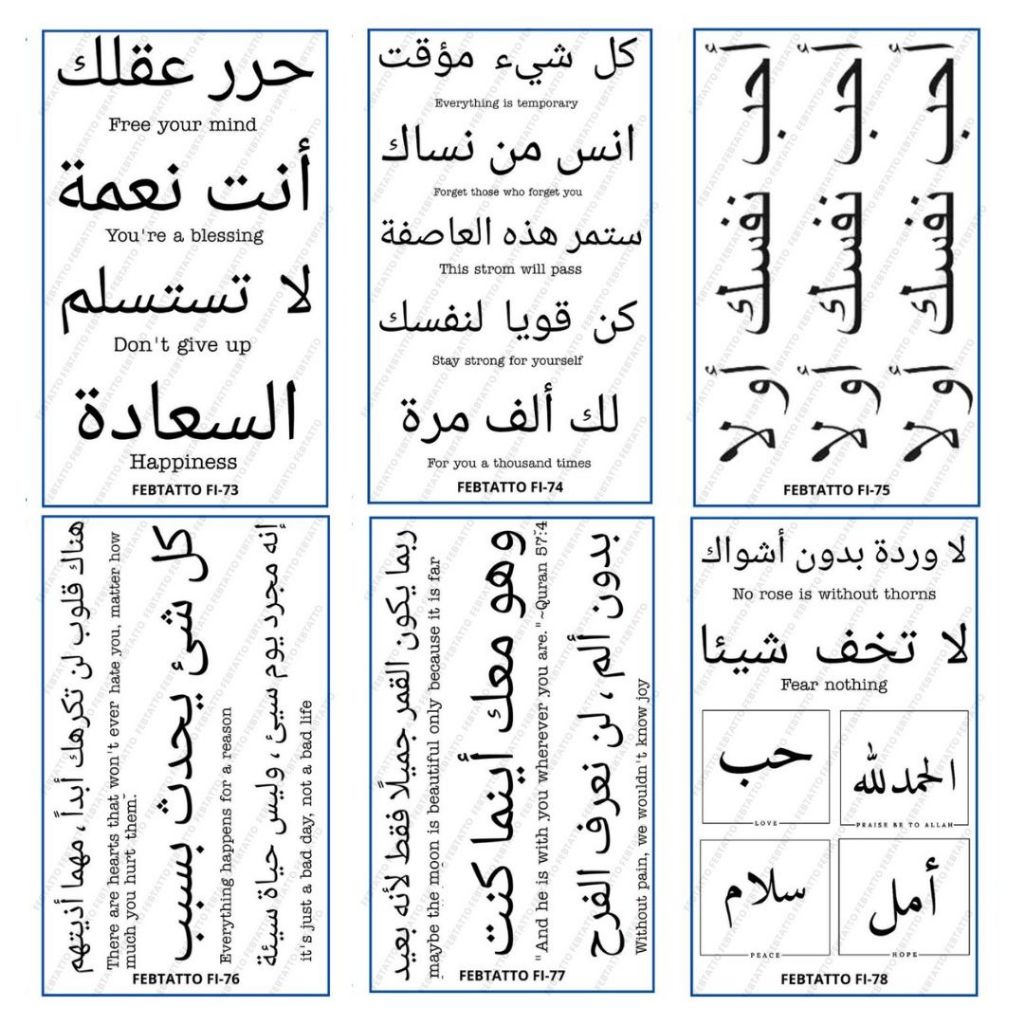 حرر عقلك
Free your mind
أنت نعمة
You're a blessing
لا تستسلم
Don't give up
السعادة
Happiness
FEBTATTO FI-73
كل شيء مؤقت
Everything is temporary
انس من نساك
Forget those who forget you
ستمر هذه العاصفة
This strom will pass
كن قويا لنفسك
Stay strong for yourself
لك ألف مرة
For you a thousand times
FEBTATTO FI-74
أحب نفسك أولا
أحب نفسك أولا
أحب نفسك أولا
FEBTATTO FI-75
هناك قلوب لن تكرهك أبداً ، مهما أذيتهم
There are hearts that won't ever hate you, matter how
much you hurt them.
كل شئ يحدث بسبب
Everything happens for a reason
إنه مجرد يوم سيئ ، وليس حياة سيئة
it's just a bad day, not a bad life
FEBTATTO FI-76
ربما يكون القمر جميلًا فقط لأنه بعيد
maybe the moon is beautiful only because it is far
وهو معك أينما كنت
"And he is with you wherever you are."~Quran 57:4
بدون ألم ، لن نعرف الفرح
Without pain, we wouldn't know joy
FEBTATTO FI-77
لا وردة بدون أشواك
No rose is without thorns
لا تخف شيئا
Fear nothing
حب
LOVE
الحمد لله
PRAISE BE TO ALLAH
سلام
PEACE
أمل
HOPE
FEBTATTO FI-78